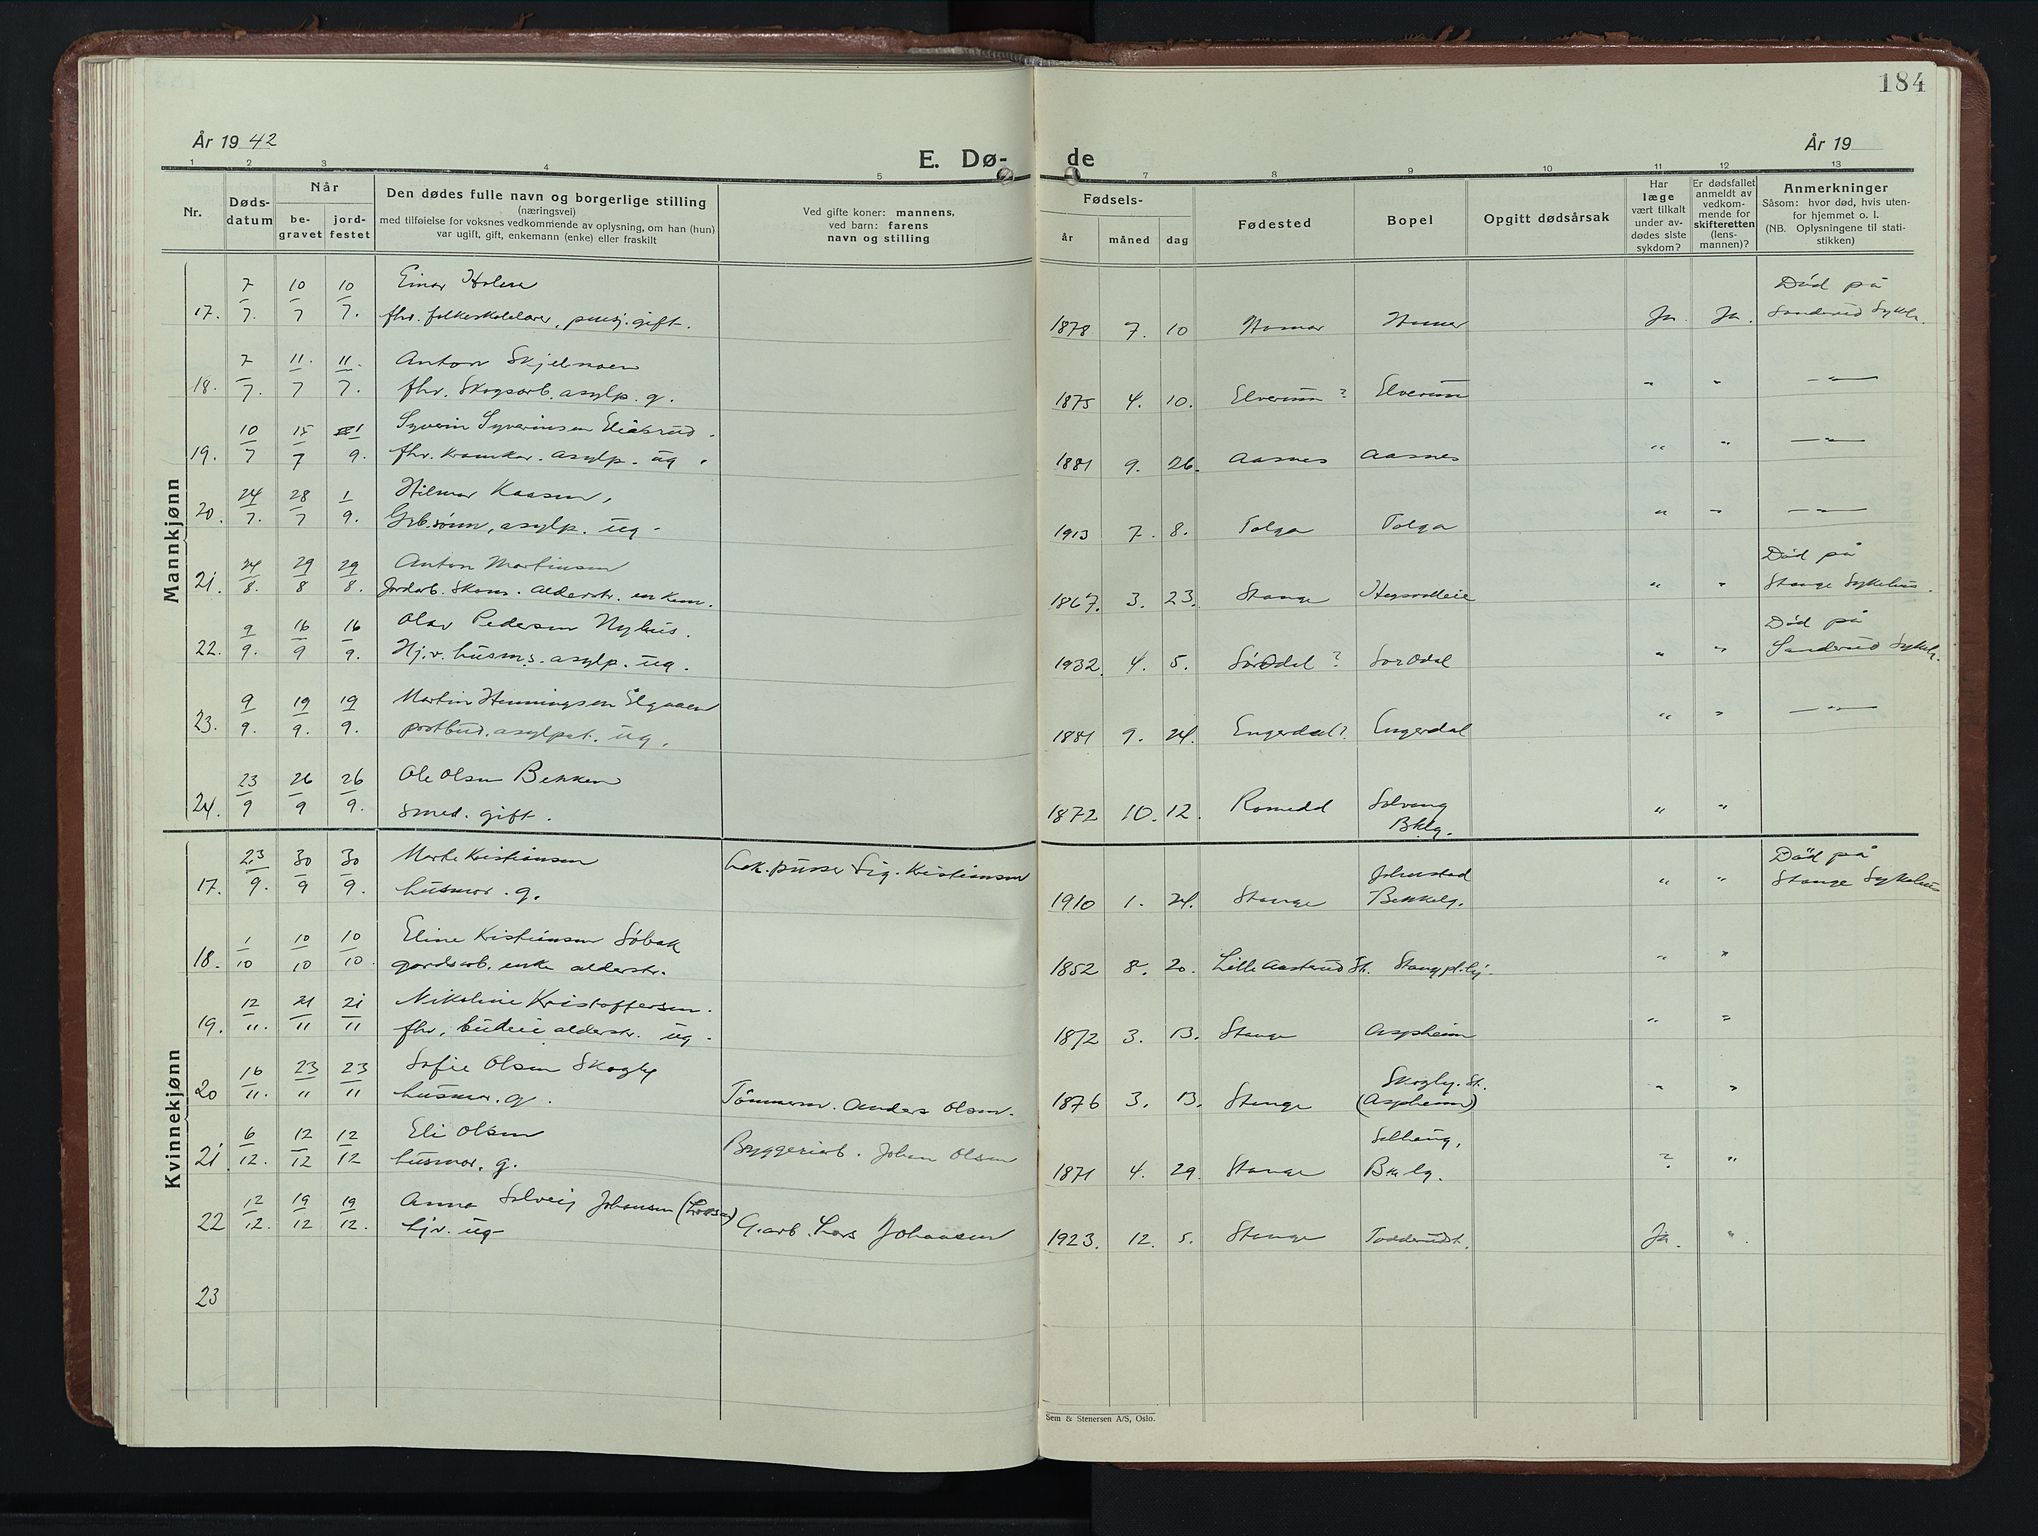 184
År 1942
År 19
E. Dø-
de
1 2 3 4 5 7 8 9 10 11 12 13
Nr.
Døds-
datum
Når
be-
gravet
jord-
festet
Den dødes fulle navn og borgerlige stilling
(næringsvei)
med tilføielse for voksnes vedkommende av oplysning, om han (hun)
var ugift, gift, enkemann (enke) eller fraskilt
Ved gifte koner: mannens,
ved barn: farens
navn og stilling
Fødsels-
år måned dag
Fødested
Bopel
Opgitt dødsårsak
Har
læge
vært tilkalt
under av-
dødes siste
sykdom?
Er dødsfallet
anmeldt av
vedkom-
mende for
skifteretten
(lens-
mannen)?
Anmerkninger
Såsom: hvor død, hvis uten-
for hjemmet o. l.
(NB. Oplysningene til stati-
stikken)
Mannkjønn
17. 7/7. 10/7 10/7. Einar
fhv. folkeskolelærer, pensj. gift.
1878 7. 10 Hamar Hamar Ja. Ja. Død på
Sanderud Sykeh.
18. 7/7. 11./7 11./7. Anton Skjelmoen
fhv. Skogsarb. asylp. g.
1875 4. 10. Elverum ? Elverum " " — " —
19. 10/7 15/7 1/9. Syverin Syverinsen
fhv. asylp. ug.
1881 9. 26. Aasnes Aasnes " " — " —
20. 24/7. 28/7 1/9. Hilmar Kaasen,
Grb.sønn, asylp. ug.
1913 7. 8. Tolga Tolga " " — " —
21. 24/8. 29/8 29/8. Anton Martinsen
Jordarb. Alderstr. enkem.
1867. 3. 23. Stange " " Død på
Stange Sykehus.
22. 9/9. 16/9 16/9. Olav Pedersen Nyhus.
Hj.v. husm.s. asylp. ug.
1932 4. 5. Sør Odal ? Sør Odal " " Død på
Sanderud Sykeh.
23. 9/9. 19/9. 19/9. Martin Henningsen Elgaaen
postbud. asylpat. ug.
1881 9. 24. Engerdal? Engerdal " " — " —
24. 23/9 26/9 26/9. Ole Olsen Bekken
smed. gift.
1872 10. 12. Romedal Solvang
Bklg. " "
Kvinnekjønn
17. 23/9. 30/9 30/9. Marte Kristiansen
husmor. g. Lok.pusser Sig. Kristiansen
1910 1. 24. Stange Johnstad
Bekkelg. " " Død på
Stange Sykehus
18. 1/10 10/10 10/10. Eline Kristiansen Søbak
gardsarb. enke alderstr.
1852 8. 20. Lille Aasterud St. Stange pl.hj. " "
19. 12/11. 21/11 21/11 Nikoline Kristoffersen.
fhv. budeie alderstr. ug.
1872 3. 13. Stange Aspheim " "
20 16/11. 23/11 23/11 Sofie Olsen Skogly
husmor. g. Tømmerm. Anders Olsen.
1876 3. 13. Stange Skogly. St.
(Aspheim) " "
21 6/12. 12/12 12/12 Eli Olsen
husmor. g. Bryggeriarb. Johan Olsen
1871 4. 29. Stange Solhaug,
Bklg. ? "
22 12/12. 19/12 19/12. Anna Solveig Johansen (Larsen)
hjv. ug. G.arb. Lars Johansen
1923. 12. 5. Stange Ja. "
23
Sem & Stenersen A/S, Oslo.